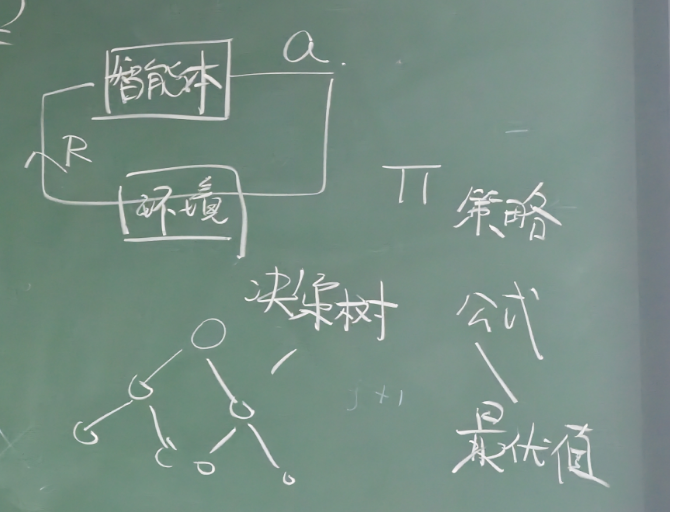 a.
智能体
R
环境
π 策略
决策树
公式
最优值